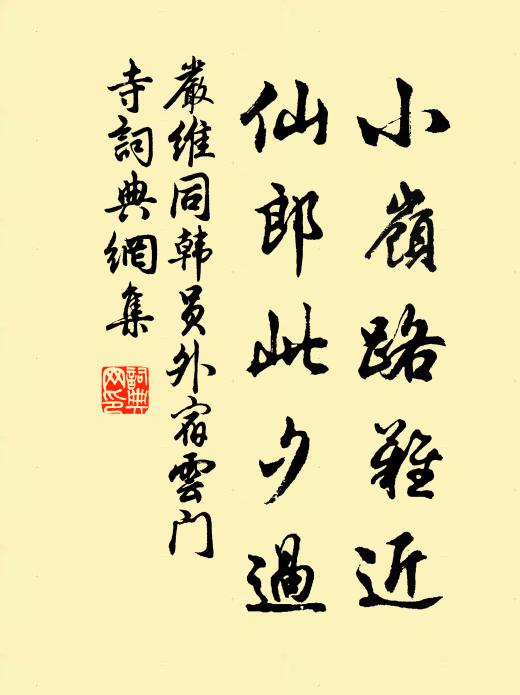 小嶺路難近
仙郎此夕過
嚴維同韩員外宿雲门
寺詞典網集
詞典網印